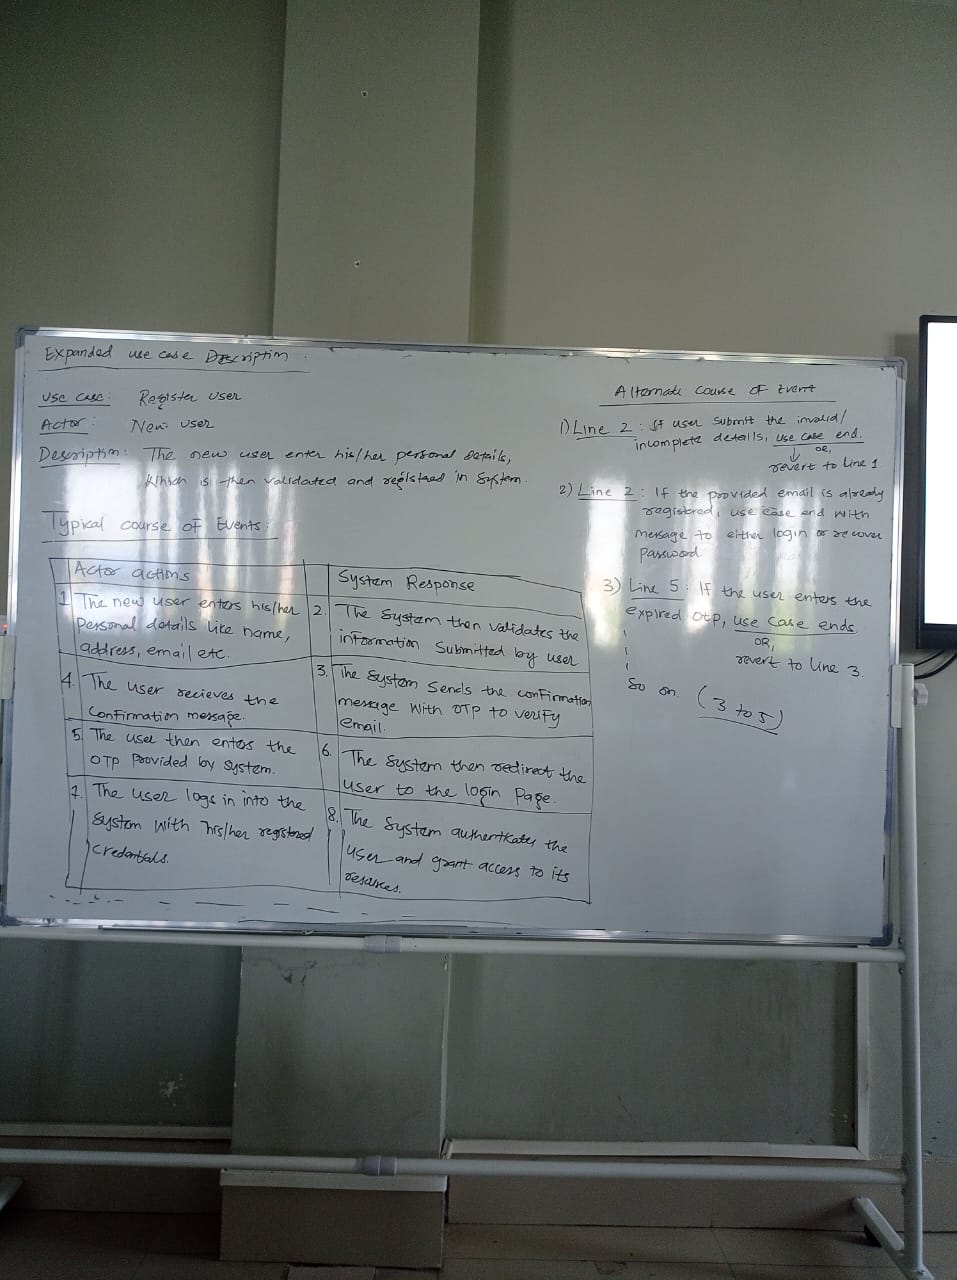 Expanded use case Description.
Use case: Register User
Actor: New user
Description: The new user enter his/her personal details,
which is then validated and registered in system.
Typical course of Events:
Actor actions
System Response
1. The new user enters his/her
personal details like name,
address, email etc.
2. The system then validates the
information submitted by user
3. The system sends the confirmation
message with OTP to verify
email.
4. The user recieves the
confirmation message.
5. The user then enters the
OTP provided by system.
6. The system then redirect the
user to the login page.
7. The user logs in into the
system with his/her registered
credentials.
8. The system authenticates the
user and grant access to its
resources.
Alternate course of Event
1) Line 2: If user submit the invalid/
incomplete details, use case end.
OR,
revert to line 1
2) Line 2: If the provided email is already
registered, use case end with
message to either login or recover
password.
3) Line 5: If the user enters the
expired OTP, use case ends
OR,
revert to line 3.
so on. (3 to 5)